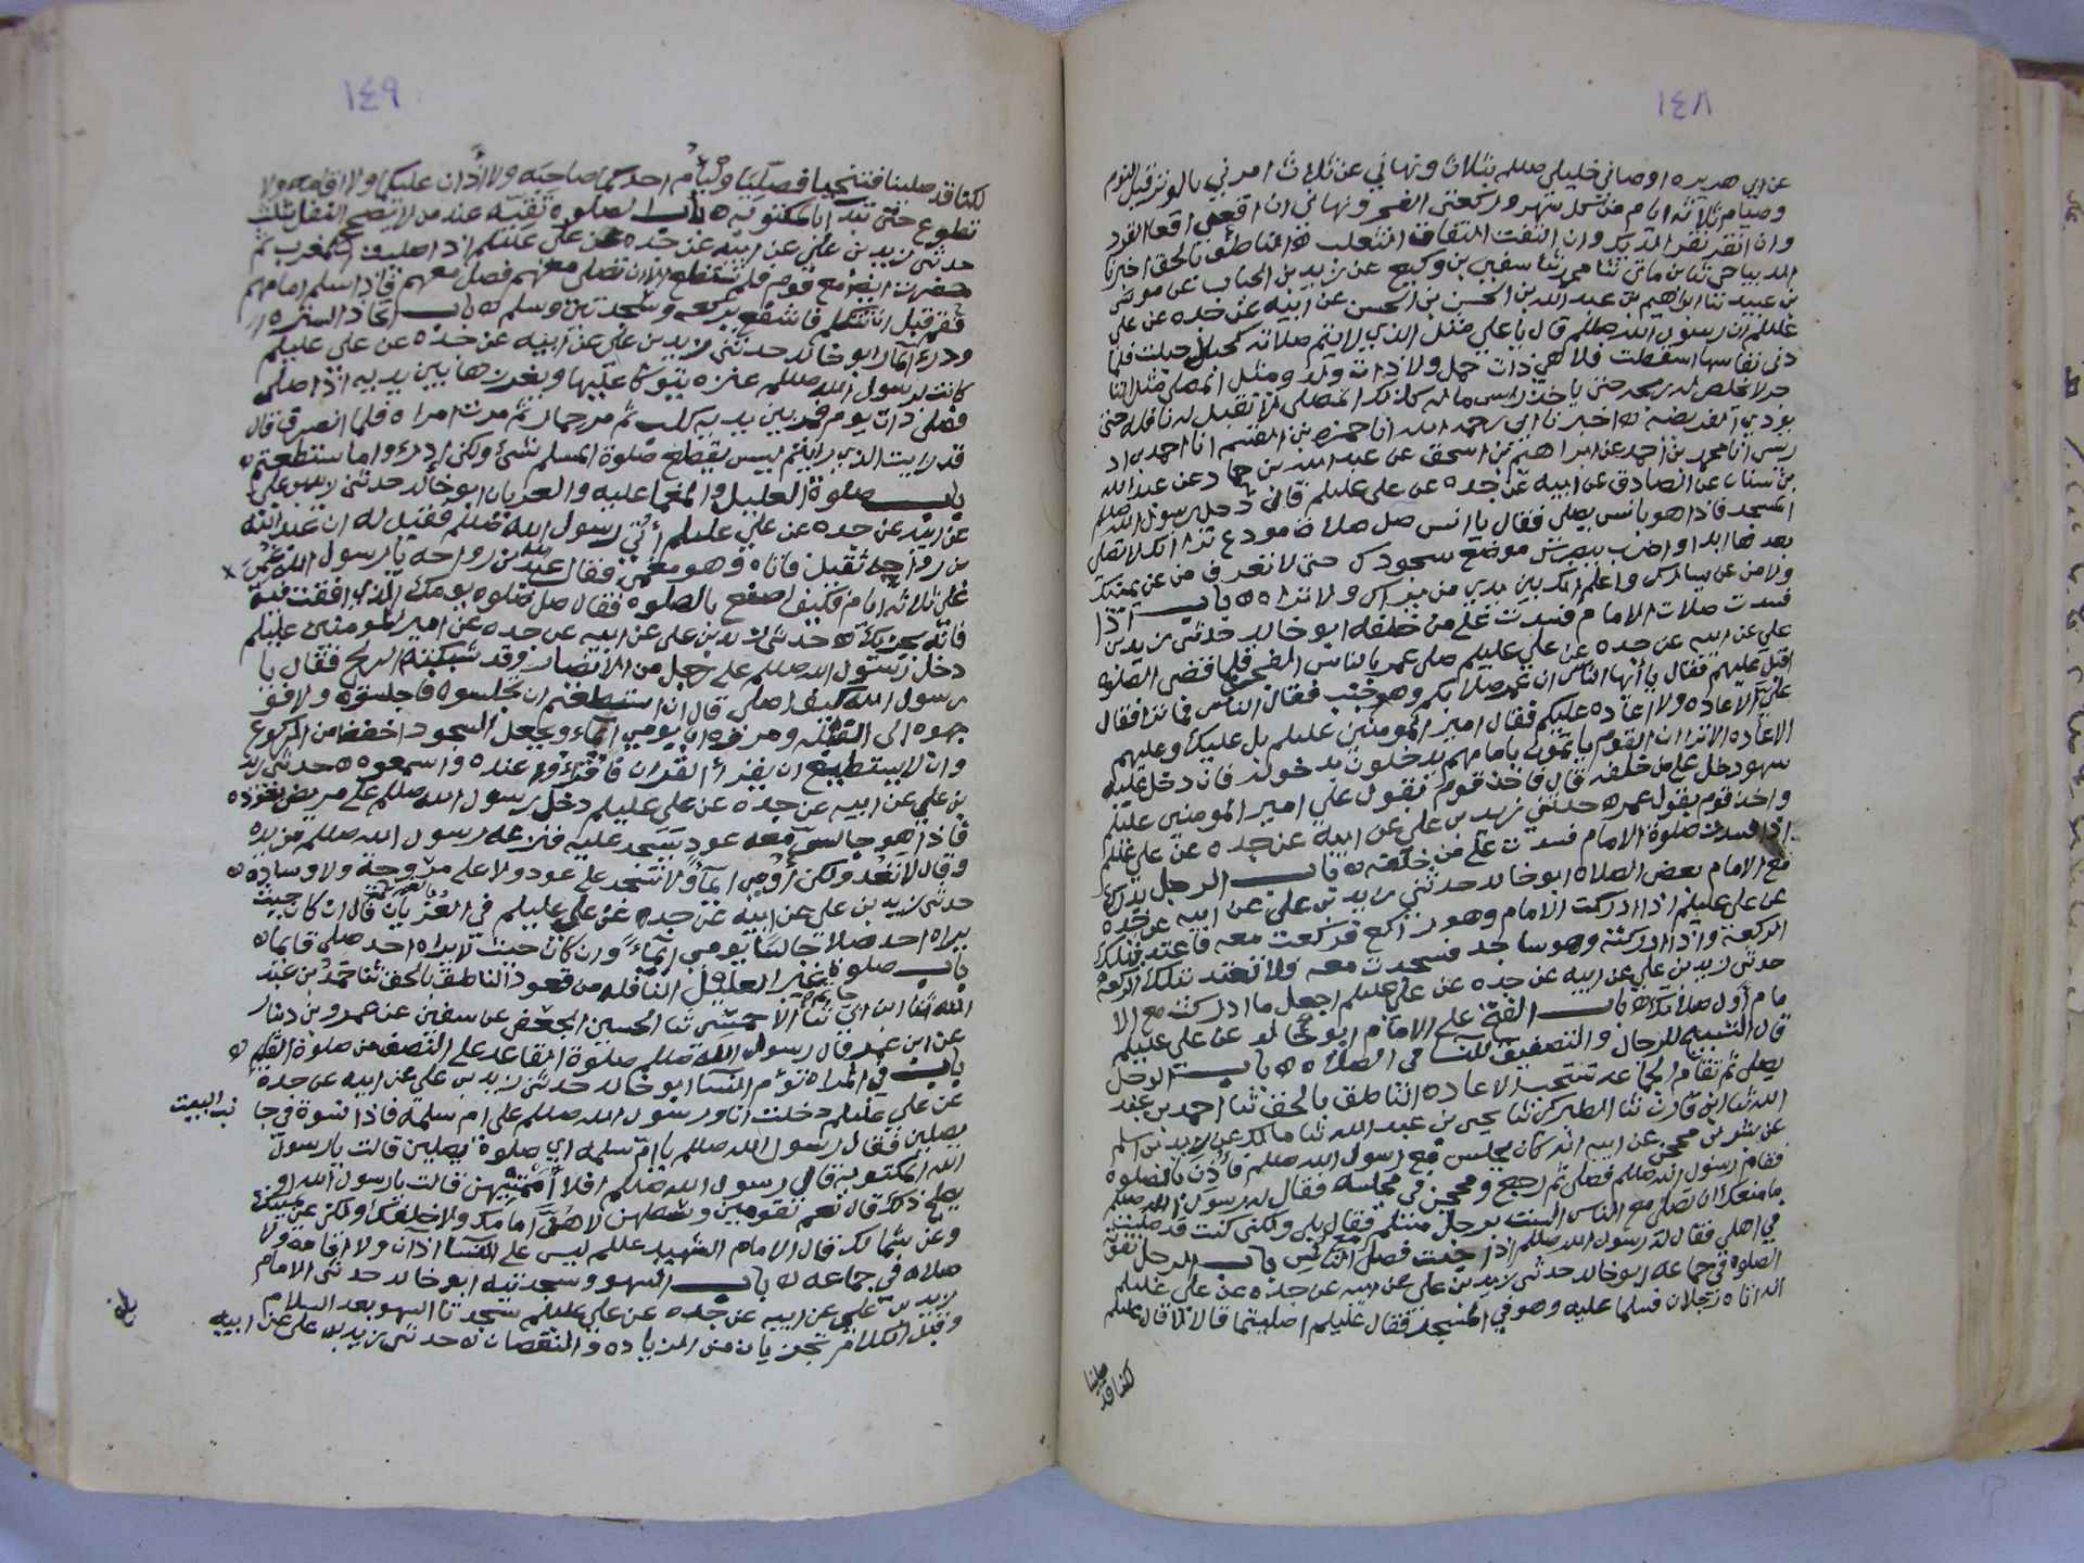 ١٤٨
عن ابي هريره اوصاني خليلي صللم بثلاث ونهاني عن ثلاث امرني بالوتر قبل النوم
وصيام ثلاثه ايام من كل شهر وركعتي الفجر ونهاني ان اقعي اقعا القرد
وان انقر نقر الديك وان التفت التفات الثعلب الناطق بالحق اخبرنا
بن عبيد ثنا ابراهيم بن عبد الله بن الحسن بن الحسن عن ابيه عن جده عن علي
عليلم ان رسول الله صللم قال يا علي مثل الذي لا يتم صلاته كحبلى حبلت فلما
دنى نفاسها اسقطت فلا هي ذات حمل ولا ذات ولد ومثل المصلي مثل التا
جر لا يخلص له ربحه حتى ياخذ راس ماله كذلك المصلي لا تقبل له نافله حتى
يودي الفريضه اخبرنا ابي رحمه الله انا حمزه بن القسم انا احمد
محمد بن احمد عن ابراهيم بن اسحق عن عبد الله بن حماد عن عبد الله
بن سنان عن الصادق عن ابيه عن جده عن علي عليلم قال دخل رسول الله صللم
المسجد فاذا هو بانس يصلي فقال يا انس صل صلاة مودع ترا انك لا تصلي
بعدها ابدا واضرب ببصرك موضع سجودك حتى لا تعرف من عن يمينك
ولا من عن يسارك واعلم انك بين يدي من يراك ولا تراه باب اذا
فسدت صلات الامام فسدت على من خلفه ابو خالد حدثني زيد بن
علي عن ابيه عن جده عن علي عليلم صلى عمر بالناس الفجر فلما قضى الصلوه
اقبل عليهم فقال يا أيها الناس ان عمر صلا بكم وهو جنب فقال الناس فما ترا فقال
علي الاعاده ولا اعاده عليكم فقال امير المومنين عليلم بل عليك وعليهم
الاعاده الا ترا ان القوم ياتمون بامامهم يدخلون بدخوله فان دخل عليه
سهو دخل على من خلفه قال فاخذ قوم بقول علي امير المومنين عليلم
واخذ قوم بقول عمر حدثني زيد بن علي عن ابيه عن جده عن علي عليلم
اذا فسدت صلوة الامام فسدت على من خلفه باب الرجل يدرك
مع الامام بعض الصلاه ابو خالد حدثني زيد بن علي عن ابيه عن جده
عن علي عليلم اذا ادركت الامام وهو راكع فركعت معه فاعتد بتلك
الركعة واذا ادركته وهو ساجد فسجدت معه فلا تعتد بتلك الركعه
حدثني زيد بن علي عن ابيه عن جده عن علي عليلم اجعل ما ادركت مع الا
مام أول صلاتك باب الفتح على الامام ابو خالد عن علي عليلم
قال التسبيح للرجال والتصفيق للنسا في الصلاه باب الرجل
يصلي ثم تقام الجماعه تستحب الاعاده الناطق بالحق ثنا احمد بن عبد
الله ثنا ابن قارن ثنا المطيري ثنا يحيى بن عبد الله ثنا مالك عن زيد بن اسلم
عن بشر بن محجن عن ابيه انه كان في مجلس مع رسول الله صللم فأذن بالصلوه
فقام رسول الله صللم فصلى ثم رجع ومحجن في مجلسه فقال له رسول الله صللم
ما منعك ان تصلي مع الناس الست برجل مسلم فقال بلى ولكني كنت قد صليت
في اهلي فقال له رسول الله صللم اذا جئت فصل مع الناس باب الرجل تفوته
الصلوة في جماعه ابو خالد حدثني زيد بن علي عن ابيه عن جده عن علي عليلم
انه اتاه رجلان فسلما عليه وهو في المسجد فقال عليلم اصليتما قالا لا قال عليلم
لكنا قد صلينا
١٤٩
لكنا قد صلينا فتنحيا فصليا وليأم احدكما صاحبه ولا اذان عليكما ولا اقامه ولا
تطوع حتى تبدآ بالمكتوبه باب الصلوة تقيه عند من لا يصح
حدثني زيد بن علي عن ابيه عن جده عن علي عليلم اذا صليت المغرب ثم
حضرت ايضا مع قوم فلم تستطع الا ان تصلي معهم فصل معهم فاذا سلم امامهم
فقم قبل ان تتكلم فاشفع بركعه وسجدتين وسلم باب اتخاذ الستره
ودرء المار ابو خالد حدثني زيد بن علي عن ابيه عن جده عن علي عليلم
كانت لرسول الله صللم عنزه يتوكا عليها ويغرزها بين يديه اذا صلى
فصلى ذات يوم فمر بين يديه كلب ثم مر حمار ثم مرت امراه فلما انصرف قال
قد رايت الذي رايتم ليس يقطع صلوة المسلم شئ ولكن ادرءوا ما استطعتم
باب صلوة العليل والمغما عليه والعريان ابو خالد حدثني زيد بن علي
عن ابيه عن جده عن علي عليلم أتي رسول الله صللم فقيل له ان عبد الله
بن رواحه ثقيل فاتاه وهو مغمى فقال عبد الله بن رواحه يا رسول الله اغمي
علي ثلاثه ايام فكيف اصنع بالصلوه فقال صل صلوه يومك الذي افقت فيه
فانه يجزيك حدثني زيد بن علي عن ابيه عن جده عن امير المومنين عليلم
دخل رسول الله صللم على رجل من الانصار وقد شبكته الريح فقال يا
رسول الله كيف اصلي قال ان استطعتم ان تجلسوه فاجلسوه ولا فوجـ
جهوه الى القبله ومروه ان يومي ايماء ويجعل السجود اخفض من الركوع
وان لا يستطيع ان يقرأ القران فاقرءوا عنده واسمعوه حدثني زيد
بن علي عن ابيه عن جده عن علي عليلم دخل رسول الله صللم على مريض يعوده
فاذا هو جالس معه عود يسجد عليه فنزعه رسول الله صللم من يده
وقال لا تعد ولكن أومي ايماءً ولا تسجد على عود ولا على مروحة ولا وساده
حدثني زيد بن علي عن ابيه عن جده عن علي عليلم في العريان قال ان كان حيث
يراه احد صلا جالسًا يومي ايماءً وان كان حيث لا يراه احد صلى قايما
باب صلوة غير العليل النافله من قعود الناطق بالحق ثنا محمد بن عبد
الله ثنا ابن ابي حاتم ثنا الاحمسي ثنا الحسين الجعفي عن سفين عن عمرو بن دينار
عن ابن عمر قال رسول الله صللم صلوة القاعد على النصف من صلوة القايم
باب في المراه تؤم النسا ابو خالد حدثني زيد بن علي عن ابيه عن جده
عن علي عليلم دخلت انا ورسول الله صللم على ام سلمه فاذا نسوة في جا
نب البيت
يصلين فقال رسول الله صللم يا ام سلمه اي صلوة يصلين قالت يا رسول
الله المكتوبه قال رسول الله صللم افلا أممتيهن قالت يا رسول الله او
يصلح ذلك قال نعم تقومين وسطهن لا هن امامك ولا خلفك ولكن عن يمينك
وعن شمالك قال الامام الشهيد عللم ليس على النسا اذان ولا اقامه ولا
صلاه في جماعه باب السهو وسجدتيه ابو خالد حدثني الامام
زيد بن علي عن ابيه عن جده عن علي عليلم سجدتا السهو بعد السلام
وقبل الكلام تجزيان من الزياده والنقصان حدثني زيد بن علي عن ابيه